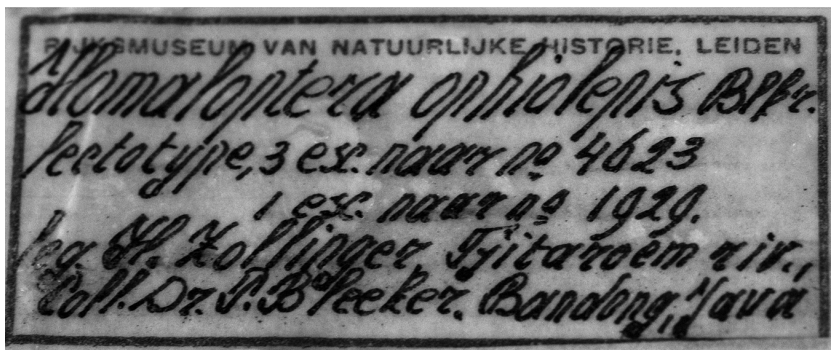 RIJKSMUSEUM VAN NATUURLIJKE HISTORIE, LEIDEN
Homaloptera ophiolepis Blkr.
lectotype, 3 ex. naar no 4623
1 ex. naar no 1929.
leg. H. Zollinger Tjitaroem riv.,
Coll. Dr. P. Bleeker. Bandong, Java